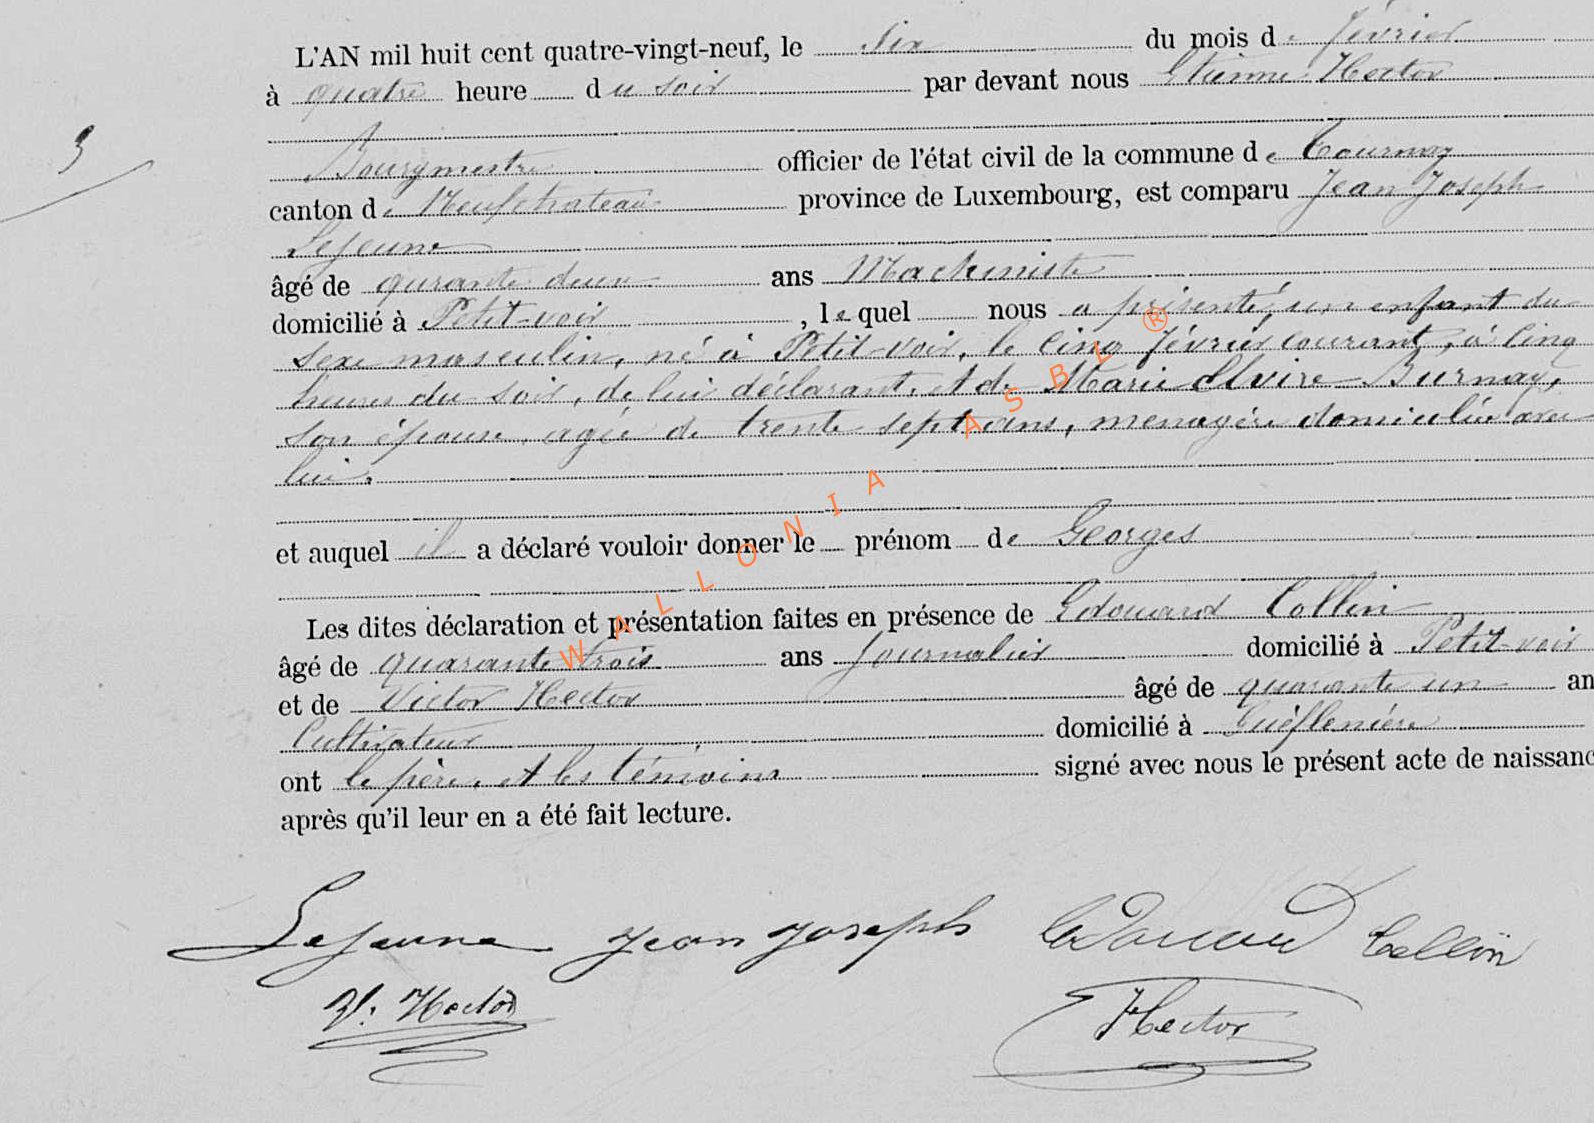 L'AN mil huit cent quatre-vingt-neuf, le six du mois de février
à quatre heure du soir par devant nous Etienne Hector
Bourgmestre officier de l'état civil de la commune de Tournay
3
canton de Neufchateau province de Luxembourg, est comparu Jean Joseph
Lejeune
âgé de qurante deux ans Machiniste
domicilié à Petit-voir, lequel nous a présenté, un enfant du
sexe masculin, né à Petit-voir, le cinq février courant, à cinq
heures du soir, de lui déclarant, et de Marie Elvire Burnay,
son épouse, agée de trente sept ans, menagère domiciliée avec
lui.
et auquel il a déclaré vouloir donner le prénom de Georges
Les dites déclaration et présentation faites en présence de Edouard Collin
âgé de quarante trois ans Journalier domicilié à Petit-voir
et de Victor Hector âgé de quarante un an
Cultivateur domicilié à
ont le père, et les témoins signé avec nous le présent acte de naissanc
après qu'il leur en a été fait lecture.
Lejeune Jean Joseph Edouard Collin
V. Hector E Hector
WALLONIA ASBL ®